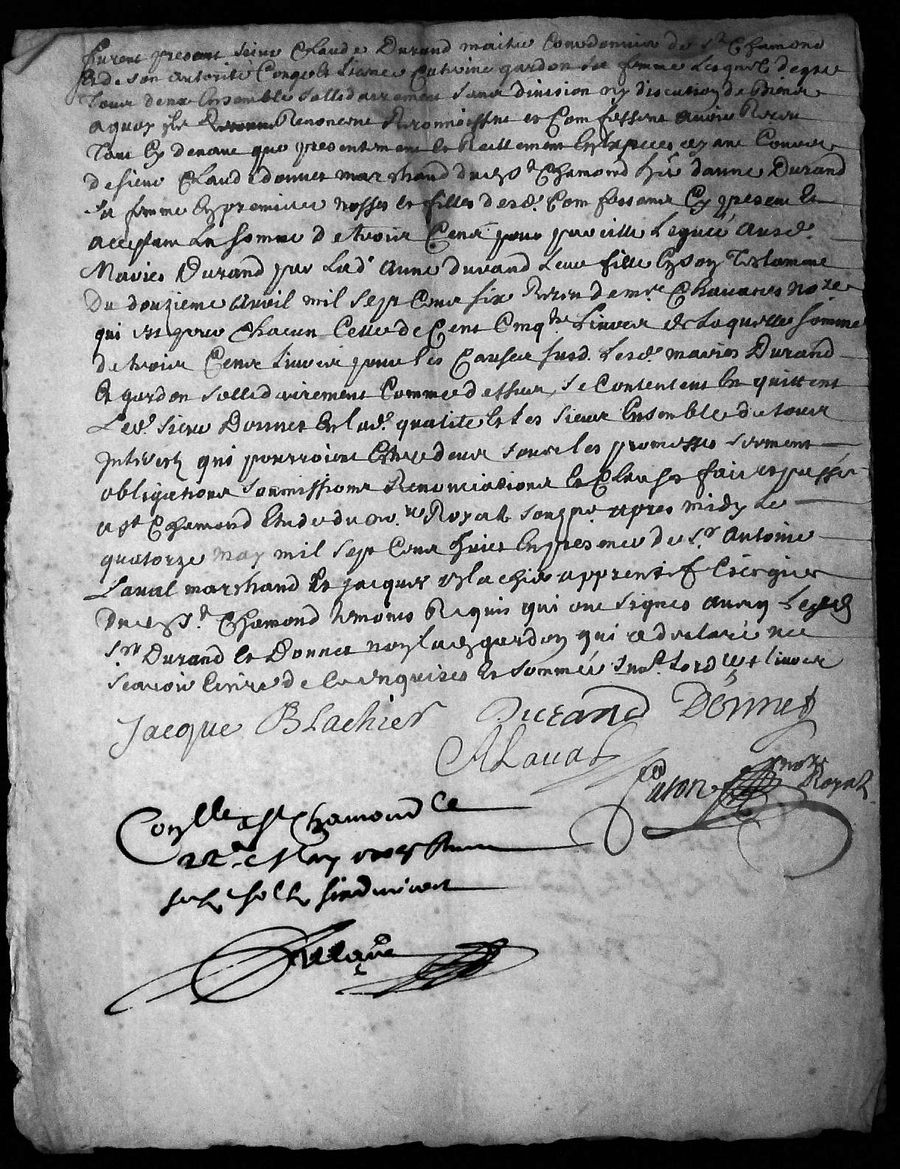 furent present sieur Claude Durand maitre Cordonnier de St Chamond
Et de son autorité Congé et licence Caterine gardon sa femme lesquels de gre
tous deux Ensemble sollidairement sans division ny discution de biens
a quoy ils Renoncent Reconnoissent et Comfessent avoir Receu
tout Cy devant que presentement et Reellement En Especes ayant Cours
de sieur Claude donnet marchand dud St Chamond danne Durand
sa femme En premieres nosses et filles desd. Comfessants Cy present et
acceptant la somme de trois Cens pour pareille Leguée ausd.
Mariés Durand par lad. Anne durand leur fille En son Testament
Du douzieme avril mil sept Cens six Receu de me Chavanes nore
qui Est pour Chacun Celle de Cent Cinqte Livres de laquelle somme
de trois Cens Livres pour les Causes susd. Lesd. mariés Durand
Et gardon sollidairement Comme dessus se Contentent En quittent
Led. sieur Donnet En lad. qualité Et les sieurs Ensemble de tous
Interests qui pourroient Estre deus sous les promesses serment
obligations soumissions Renonciations et Clauses fait et passé
a St Chamond Etude du nore Royal soussigné apres midy Le
quatorze may mil sept Cens huict En presence de sr Antoine
Laval marchand Et jacques Blachier apprentif
dud St Chamond temoins Requis qui ont signés avecq Lesd
srs Durand et Donnet non lad gardon qui a declaré ne
scavoir Ecrire de ce Enquises et sommée
Jacque Blachier Durand Donnet
A Laval
nore Royal
St Chamond le
22e May